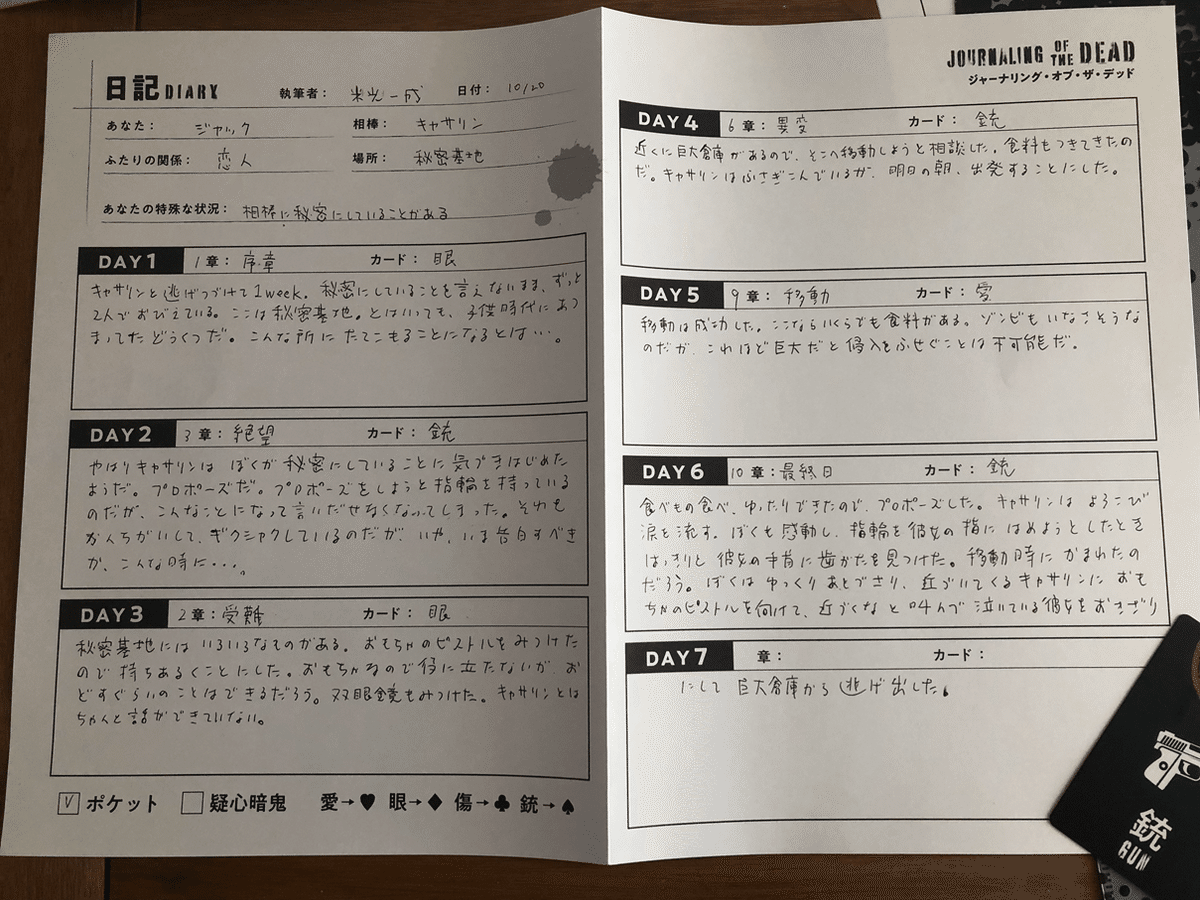 日記 DIARY 執筆者： 米光一成 日付： 10/20
あなた： ジャック 相棒： キャサリン
ふたりの関係： 恋人 場所： 秘密基地
あなたの特殊な状況： 相棒に秘密にしていることがある
DAY1 1章： 序章 カード： 眼
キャサリンと逃げつづけて1week。秘密にしていることを言えないまま、ずっと
2人でおびえている。ここは秘密基地。とはいっても、子供時代にあつ
まってたどうくつだ。こんな所にたてこもることになるとは…。
DAY2 3章： 絶望 カード： 銃
やはりキャサリンは ぼくが秘密にしていることに気づきはじめた
ようだ。プロポーズだ。プロポーズをしようと指輪を持っている
のだが、こんなことになって言いだせなくなってしまった。それも
かんちがいして、ギクシャクしているのだが、いや、いま告白すべき
か、こんな時に・・・。
DAY3 2章： 受難 カード： 眼
秘密基地には いろいろなものがある。おもちゃのピストルをみつけた
ので持ちあるくことにした。おもちゃなので役に立たないが、お
どすぐらいのことはできるだろう。双眼鏡もみつけた。キャサリンとは
ちゃんと話ができていない。
☑ポケット □疑心暗鬼 愛→♥ 眼→♦ 傷→♣ 銃→♠
JOURNALING OF THE DEAD
ジャーナリング・オブ・ザ・デッド
DAY4 6章： 異変 カード： 銃
近くに巨大倉庫があるので、そこへ移動しようと相談した。食料もつきてきたの
だ。キャサリンはふさぎこんでいるが、明日の朝、出発することにした。
DAY5 9章： 移動 カード： 愛
移動は成功した。ここならいくらでも食料がある。ゾンビもいなさそうな
のだが、これほど巨大だと侵入をふせぐことは不可能だ。
DAY6 10章： 最終日 カード： 銃
食べもの食べ、ゆったりできたので、プロポーズした。キャサリンは よろこび
涙を流す。ぼくも感動し、指輪を彼女の指に はめようとしたとき
はっきりと彼女の手首に歯がたを見つけた。移動時に かまれたの
だろう。ぼくは ゆっくりあとづさり、近づいてくるキャサリンに おも
ちゃのピストルを向けて、近づくなと叫んで泣いている彼女をおきざり
DAY7 章： カード：
にして 巨大倉庫から逃げ出した。
銃
GUN